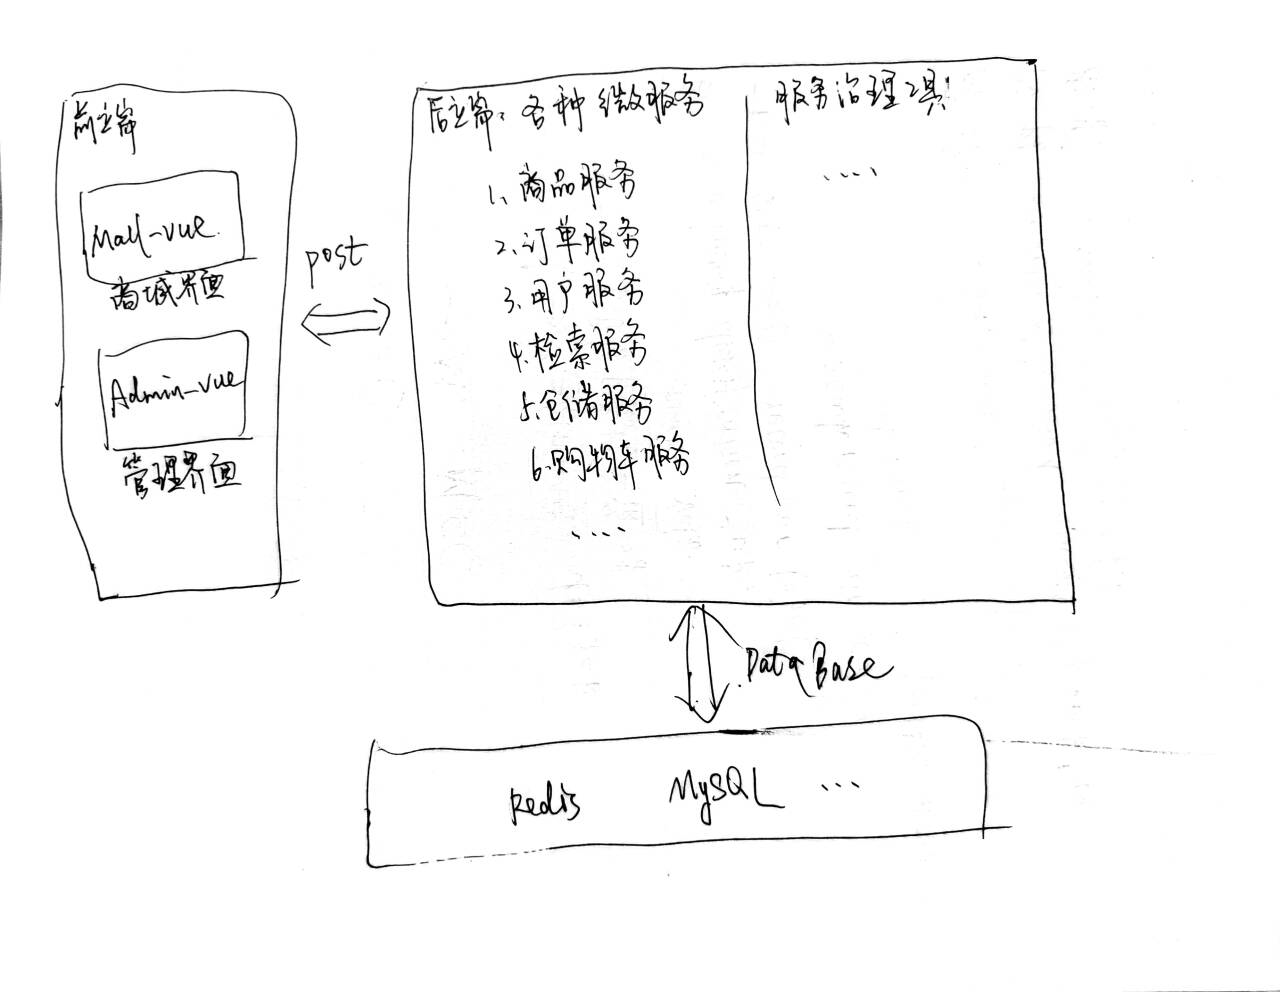 前端
Mall-vue
商城界面
Admin-vue
管理界面
post
后端：各种微服务
1、商品服务
2、订单服务
3、用户服务
4、检索服务
5、仓储服务
6、购物车服务
....
服务治理工具
....
DataBase
Redis MySQL ...